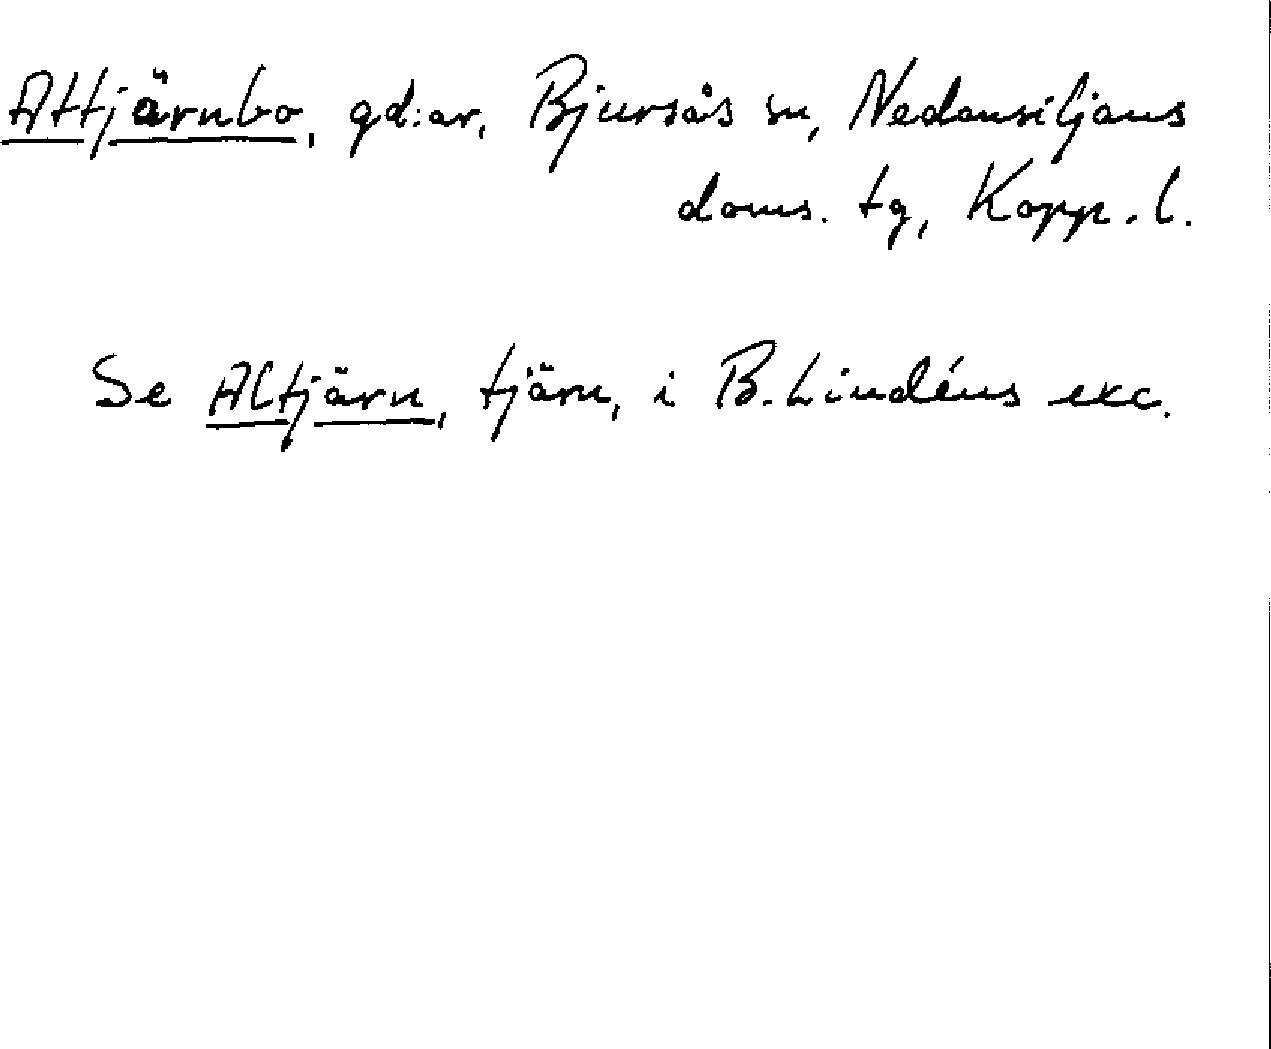 Attjärnbo, gd:ar, Bjursås sn, Nedansiljans
doms. tg, Kopp. l.
Se Altjärn, tjärn, i B. Lindéns exc.